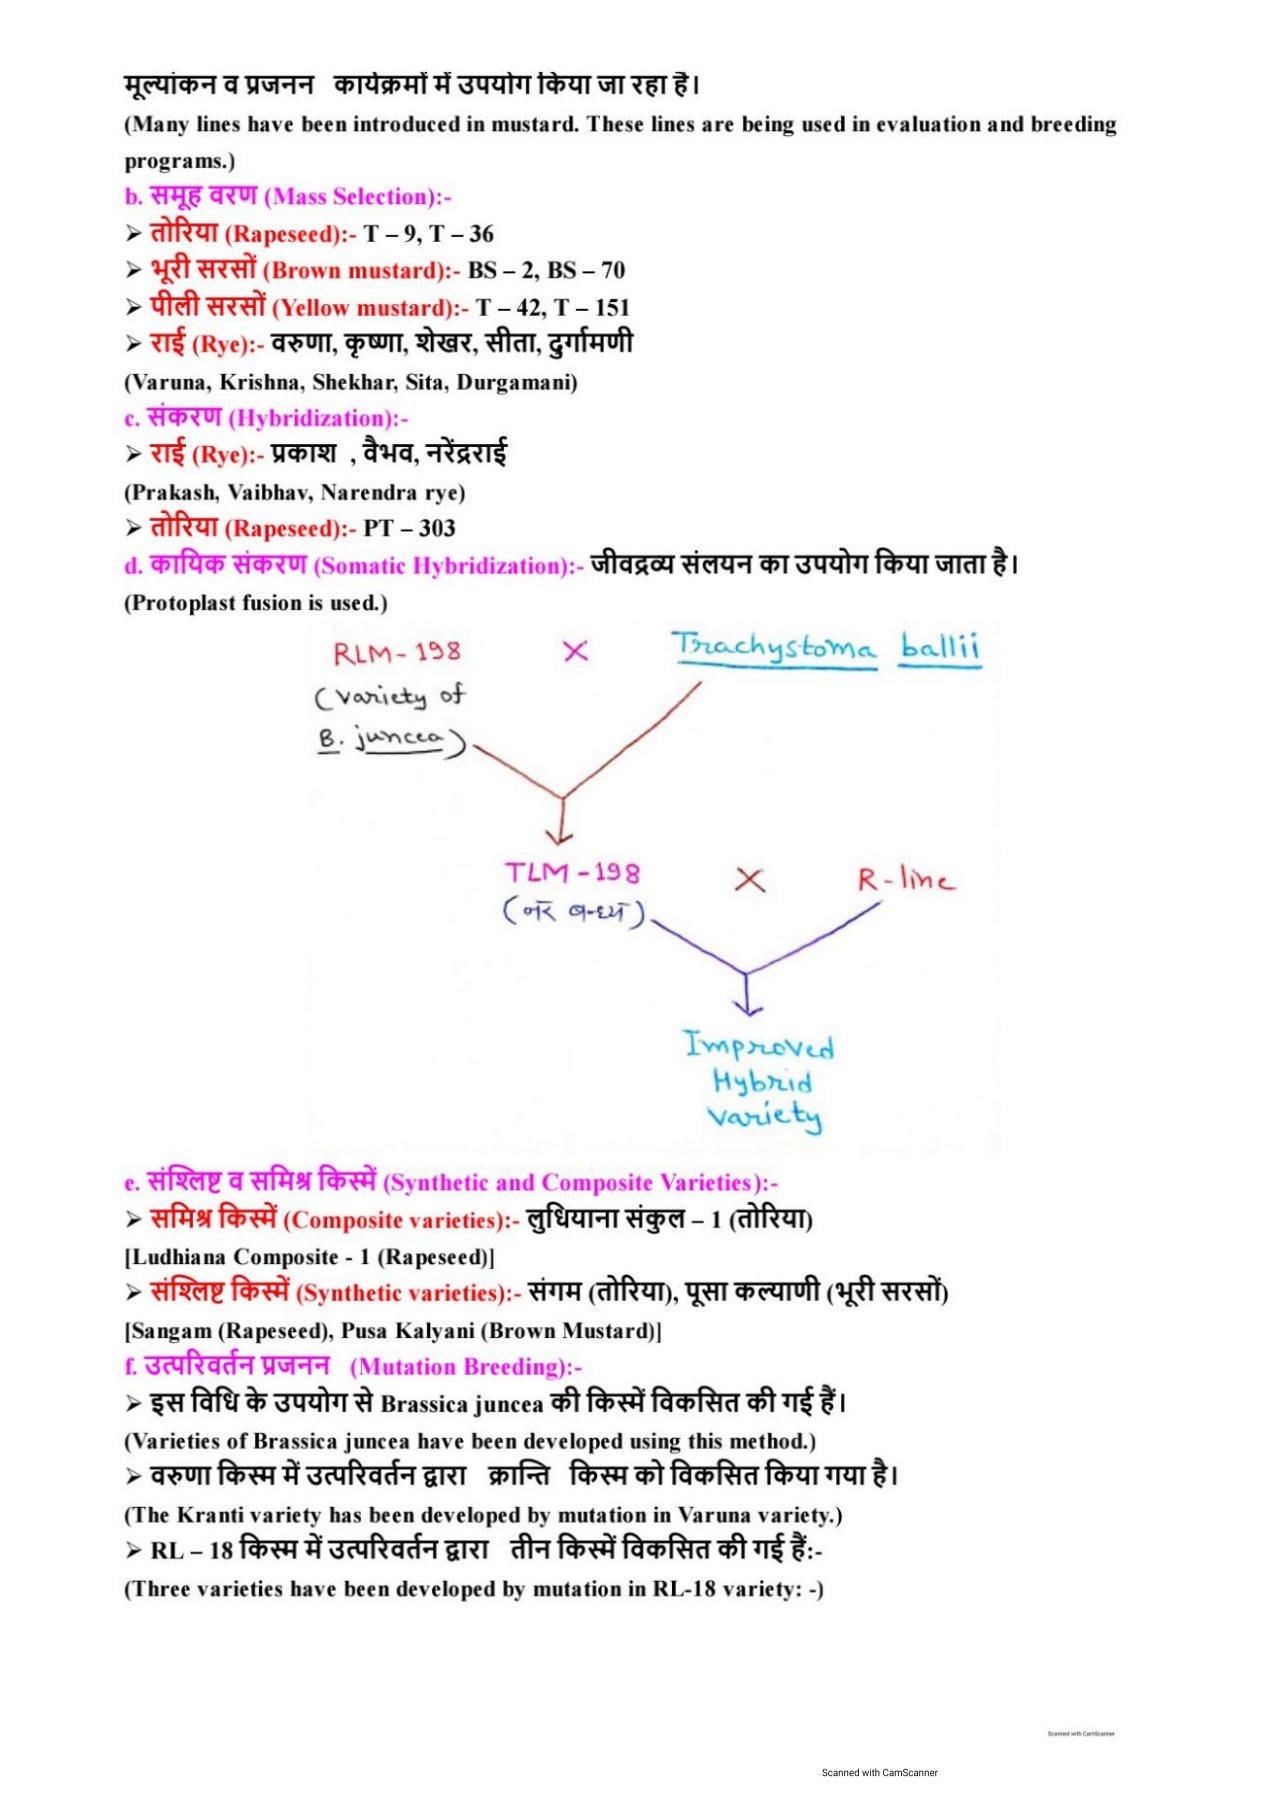 मूल्यांकन व प्रजनन कार्यक्रमों में उपयोग किया जा रहा है।
(Many lines have been introduced in mustard. These lines are being used in evaluation and breeding
programs.)
b. समूह वरण (Mass Selection):-
➢ तोरिया (Rapeseed):- T – 9, T – 36
➢ भूरी सरसों (Brown mustard):- BS – 2, BS – 70
➢ पीली सरसों (Yellow mustard):- T – 42, T – 151
➢ राई (Rye):- वरुणा, कृष्णा, शेखर, सीता, दुर्गामणी
(Varuna, Krishna, Shekhar, Sita, Durgamani)
c. संकरण (Hybridization):-
➢ राई (Rye):- प्रकाश , वैभव, नरेंद्रराई
(Prakash, Vaibhav, Narendra rye)
➢ तोरिया (Rapeseed):- PT – 303
d. कायिक संकरण (Somatic Hybridization):- जीवद्रव्य संलयन का उपयोग किया जाता है।
(Protoplast fusion is used.)
RLM-198 X Trachystoma ballii
(variety of
B. juncea)
TLM-198 X R-line
(नर बन्ध्य)
Improved
Hybrid
variety
e. संश्लिष्ट व समिश्र किस्में (Synthetic and Composite Varieties):-
➢ समिश्र किस्में (Composite varieties):- लुधियाना संकुल – 1 (तोरिया)
[Ludhiana Composite - 1 (Rapeseed)]
➢ संश्लिष्ट किस्में (Synthetic varieties):- संगम (तोरिया), पूसा कल्याणी (भूरी सरसों)
[Sangam (Rapeseed), Pusa Kalyani (Brown Mustard)]
f. उत्परिवर्तन प्रजनन (Mutation Breeding):-
➢ इस विधि के उपयोग से Brassica juncea की किस्में विकसित की गई हैं।
(Varieties of Brassica juncea have been developed using this method.)
➢ वरुणा किस्म में उत्परिवर्तन द्वारा क्रान्ति किस्म को विकसित किया गया है।
(The Kranti variety has been developed by mutation in Varuna variety.)
➢ RL – 18 किस्म में उत्परिवर्तन द्वारा तीन किस्में विकसित की गई हैं:-
(Three varieties have been developed by mutation in RL-18 variety: -)
Scanned with CamScanner
Scanned with CamScanner